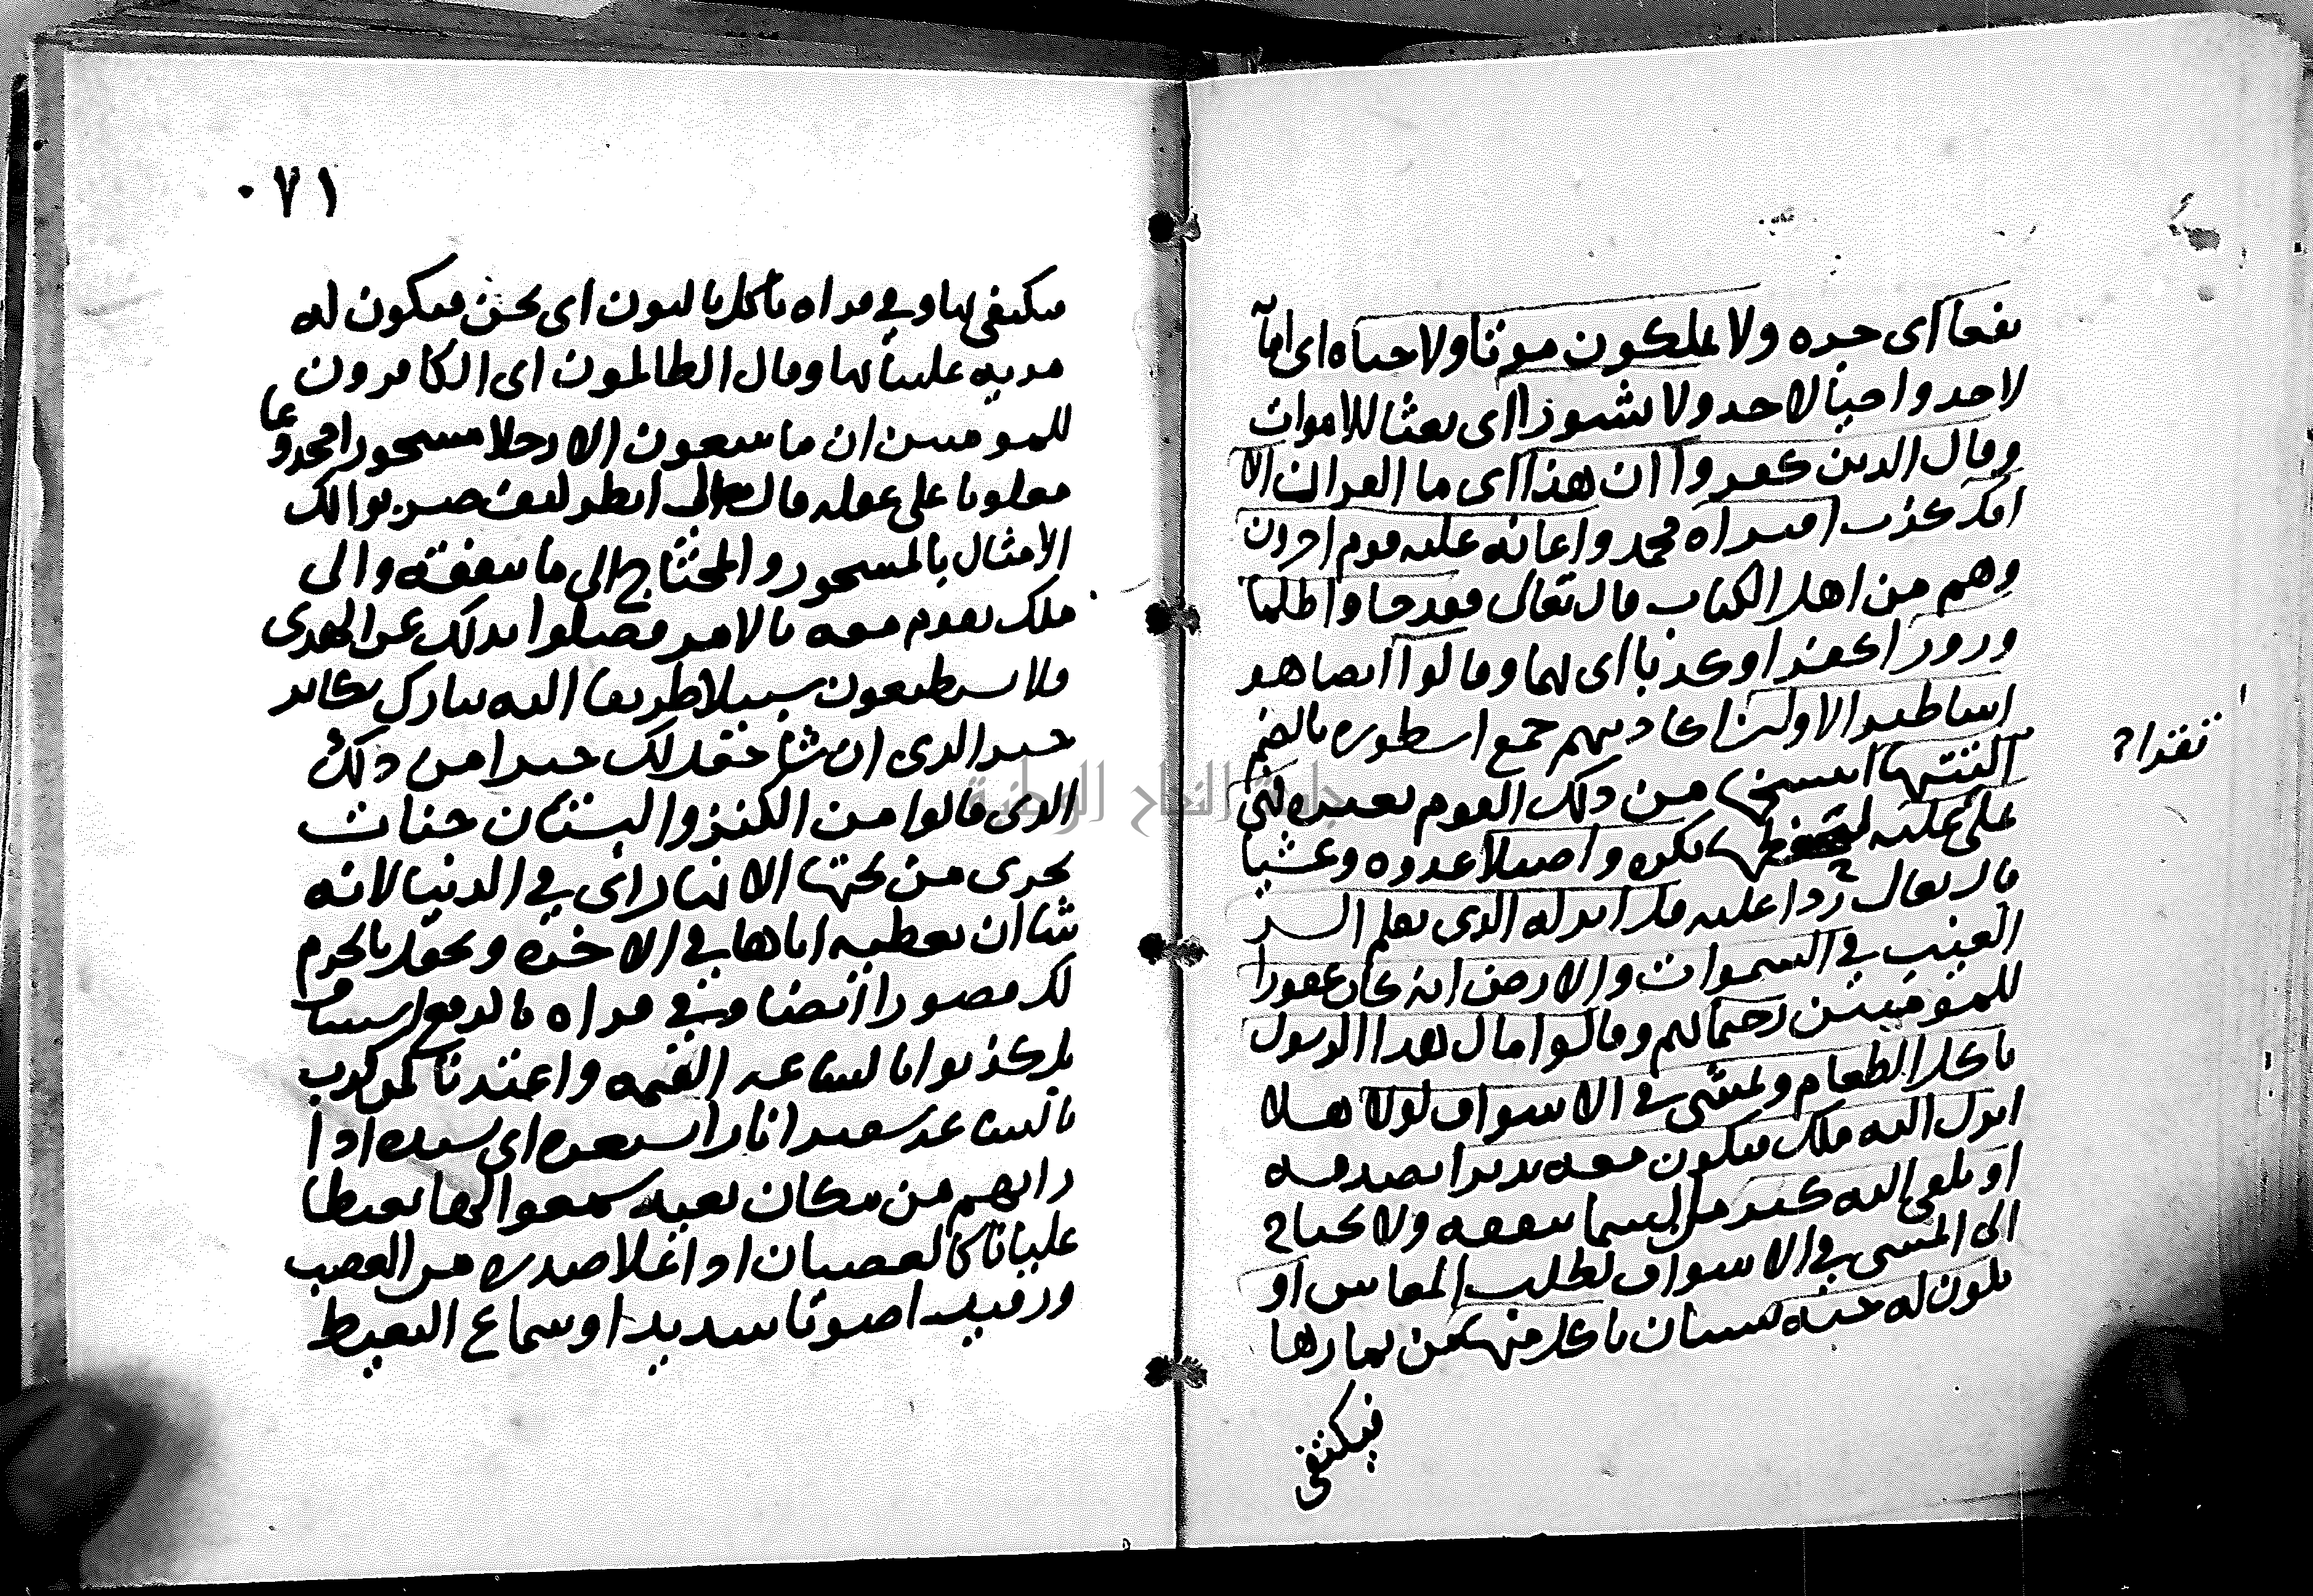 نفعا اى جره ولا يملكون موتا ولا حياه اى اماتة
لاحد واحيا لاحد ولا نشورا اى بعثا للاموات
وقال الذين كفروا ان هذا اى ما القران الا
افك كذب افتراه محمد واعانه عليه قوم اخرون
وهم من اهل الكتاب قال تعالى فقد جاوا ظلما
وزورا كفرا وكذبا اى بهما وقالوا ايضا هو
اساطير الاولين اكاذيبهم جمع اسطوره بالضم
اكتتبها انتسخها من ذلك القوم بغيره فهى
تملى عليه ليحفظها بكره واصيلا غدوه وعشيا
قال تعالى ردا عليه قل انزله الذى يعلم السر
الغيب في السموات والارض انه كان غفورا
للمومنين رحيما بهم وقالوا مال هذا الرسول
ياكل الطعام ويمشى في الاسواق لولا هلا
انزل اليه ملك فيكون معه نذيرا يصدقه
او يلقى اليه كنز من السما ينفقه ولا يحتاج
الى المشى في الاسواق لطلب المعاش او
تكون له جنه بستان ياكل منها من ثمارها
فيكتفى
٠٧١
فيكتفى بها وفي قراه ناكل بالنون اى نحن فيكون له
مزيه علينا بها وقال الظالمون اى الكافرون
للمومنين ان ما تتبعون الا رجلا مسحورا مخدوعا
مغلوبا على عقله قال تعالى انظر كيف ضربوا لك
الامثال بالمسحور والمحتاج الى ما ينفقه والى
ملك يقوم معه بالامر فضلوا بذلك عن الهدى
فلا يستطيعون سبيلا طريقا اليه تبارك تكاثر
خير الذى ان شا جعل لك خيرا من ذلك
الذى قالوا من الكنز والبستان جنات
تجرى من تحتها الانهار اى في الدنيا لانه
شا ان يعطيه اياها في الاخره ويجعل بالجزم
لك قصورا ايضا وفي قراه بالرفع استينافا
بل كذبوا بالساعه القيمه واعتدنا لمن كذب
بالساعه سعيرا نارا مسعره اى شديده اذا
راتهم من مكان بعيد سمعوا لها تغيظا
غليانا كالغضبان اذا غلا صدره من الغضب
وزفيرا صوتا شديدا وسماع التغيظ